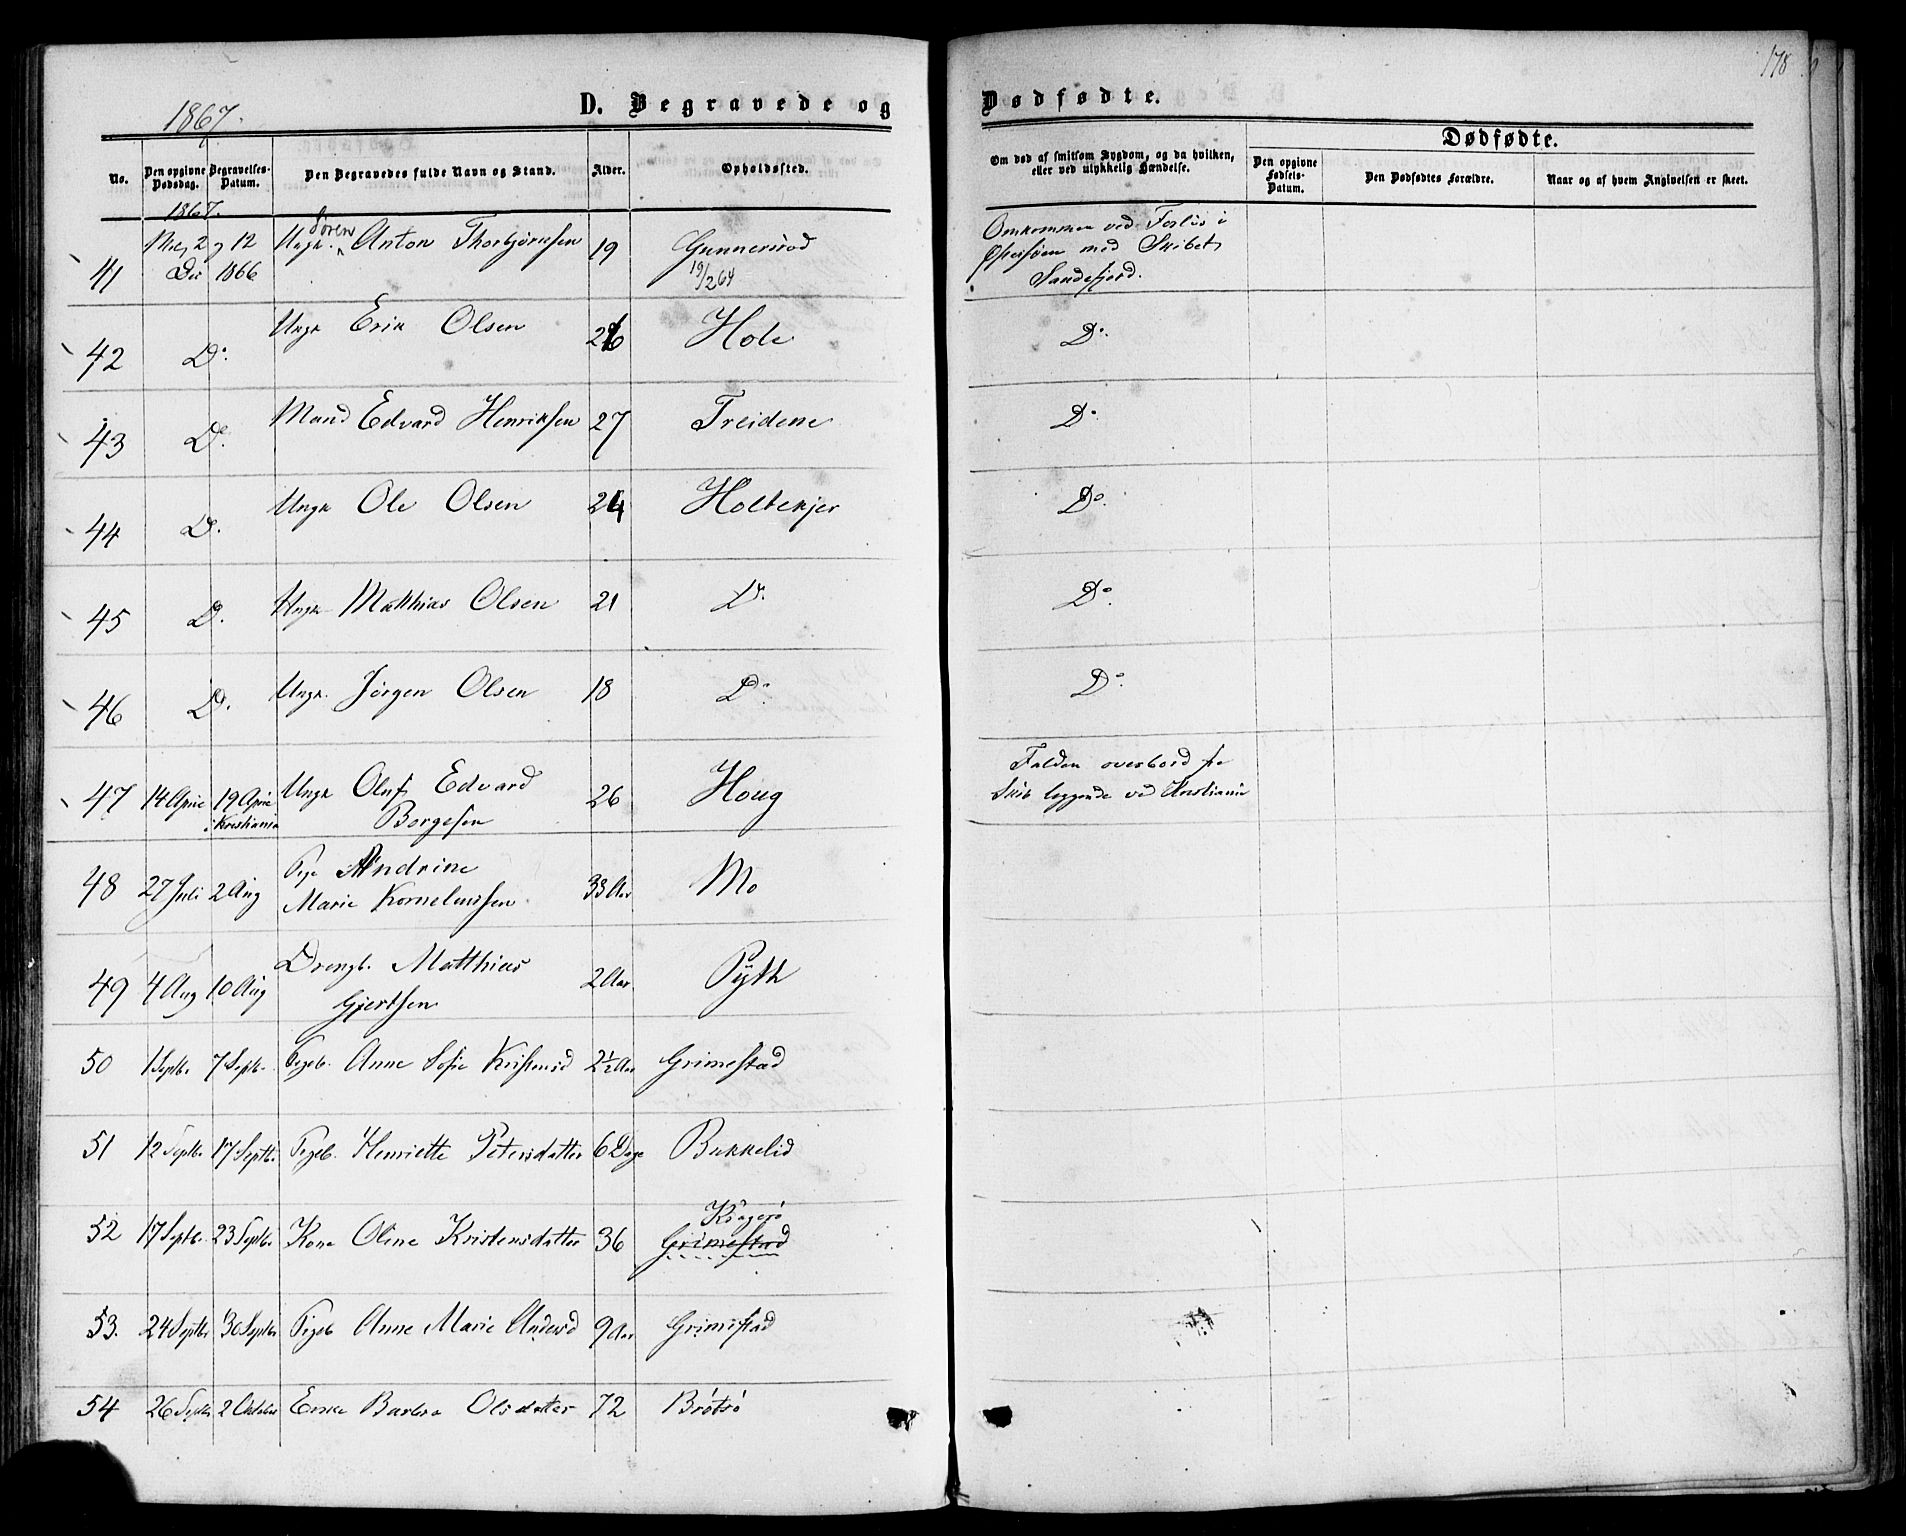 178
1867.
D. Begravede og Dødfødte.
No.
Den opgivne Dødsdag.
Begravelses-Datum.
Den Begravedes fulde Navn og Stand.
Alder.
Opholdssted.
Om død af smitsom Sygdom, og da hvilken, eller ved ulykkelig Hændelse.
Dødfødte.
Den opgivne Fødsels-Datum.
Den Dødfødtes Forældre.
Naar og af hvem Angivelsen er skeet.
1867.
41 2 og 12 Dec 1866 Ungk. Sören Anton Thorbjörnsen 19 Gunnersröd 19/2 64 Omkommen ved Forlis i Østersøen med Skibet Sandefjord.
42 Do. Ungk Erik Olsen 26 Hole Do.
43 Do. Mand Edvard Henriksen 27 Treidene Do.
44 Do. Ungk Ole Olsen 24 Holtekjer Do.
45 Do. Ungk Matthias Olsen 21 Do. Do.
46 Do. Ungk. Jørgen Olsen 18 Do. Do.
47 14 April 19 April i Kristiania Ungk Oluf Edvard Borgesen 26 Houg Falden overbord fra Skib liggende ved Kristiania
48 27 Juli 2 Aug Pige Andrine Marie Korneliussen 33 Aar Mo
49 4 Aug 10 Aug Drengb. Matthias Gjertsen 2 Aar Pyth
50 1 Septbr. 7 Septbr. Pigeb. Anne Sofie Kristensd 2½ Aar Grimestad
51 12 Septbr. 17 Septbr. Pigeb. Henriette Petersdatter 6 Dage Bakkelid
52 17 Septbr. 23 Septbr. Kone Oline Kristensdatter 36 Kragerö Grimestad
53. 24 Septbr 30 Septbr. Pigeb Anne Marie Andersd 9 Aar Grimestad
54 26 Septbr 2 Oktober Enke Barbra Olsdatter 72 Brötsö